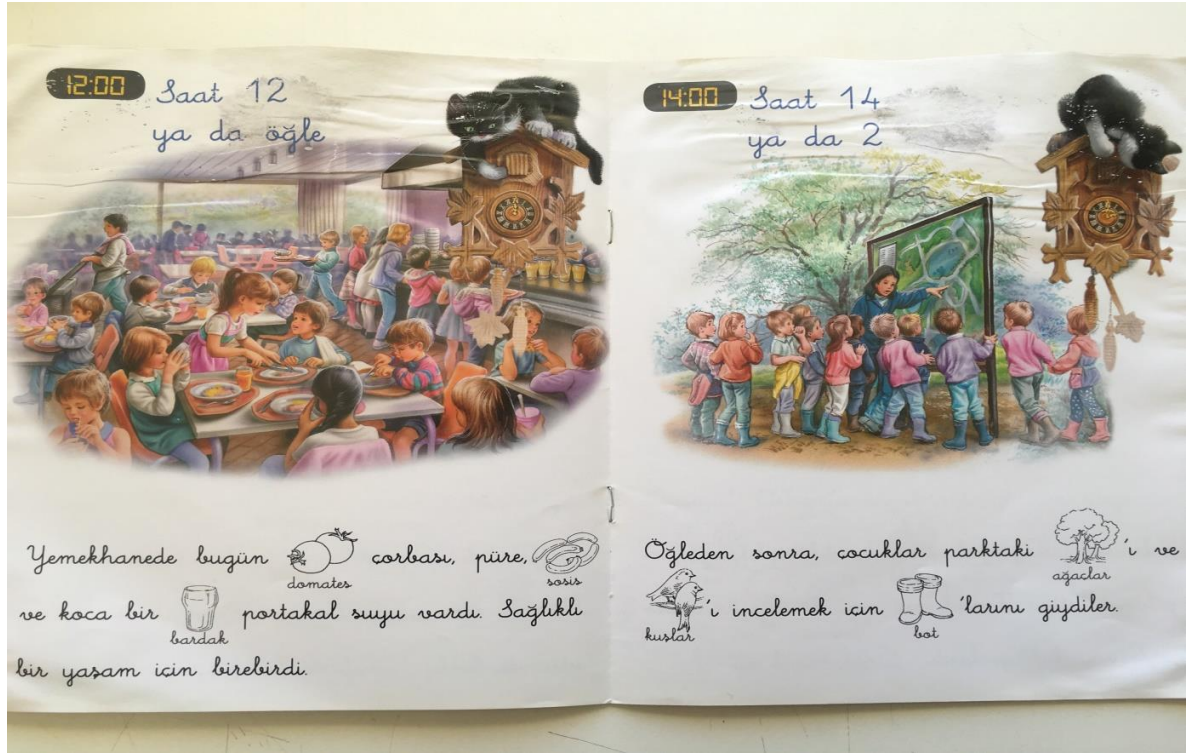 12:00 Saat 12
ya da öğle
Yemekhanede bugün domates çorbası, püre, sosis
ve koca bir bardak portakal suyu vardı. Sağlıklı
bir yaşam için birebirdi.
14:00 Saat 14
ya da 2
Öğleden sonra, çocuklar parktaki ağaçlar 'ı ve
kuşlar 'ı incelemek için bot 'larını giydiler.